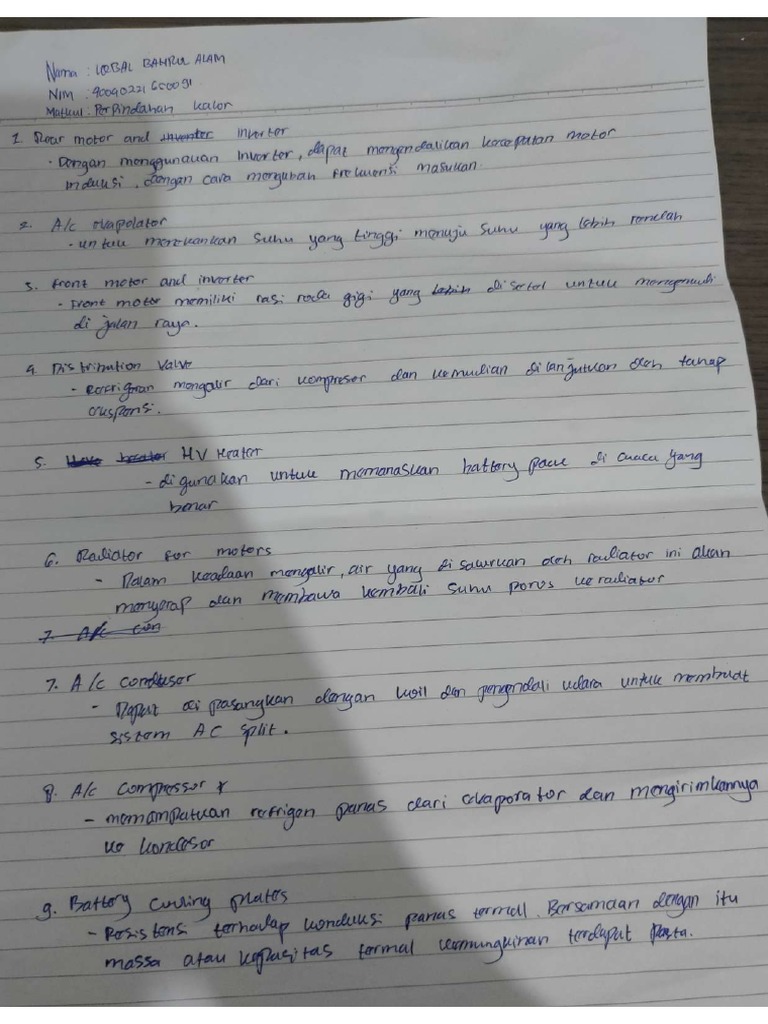 Nama : IQBAL BAHRUL ALAM
NIM : 90090221650091
Matkul : Perpindahan kalor
1. Rear motor and inverter inverter
- Dengan menggunakan Inverter, dapat mengendalikan kecepatan motor
induksi, dengan cara mengubah frekuensi masukan.
2. A/c evapolator
- untuk menekankan suhu yang tinggi menuju suhu yang lebih rendah
3. Front motor and inverter
- Front motor memiliki rasi roda gigi yang lebih disetel untuk mengemudi
di jalan raya.
4. Distribution Valve
- Refrigeran mengalir dari kompresor dan kemudian dilanjutkan oleh tahap
ekspansi.
5. heater HV Heater
- digunakan untuk memanaskan battery pack di cuaca yang
benar
6. Radiator for motors
- Dalam keadaan mengalir, air yang disalurkan oleh radiator ini akan
menyerap dan membawa kembali suhu panas ke radiator
7. A/c con
7. A/c condesor
- Dapat di pasangkan dengan koil dan pengendali udara untuk membuat
sistem AC split.
8. A/c compressor
- memampatkan refrigen panas dari evaporator dan mengirimkannya
ke kondesor
9. Battery cooling plates
- Resistensi terhadap konduksi panas termal. Bersamaan dengan itu
massa atau kapasitas termal kemungkinan terdapat pasta.